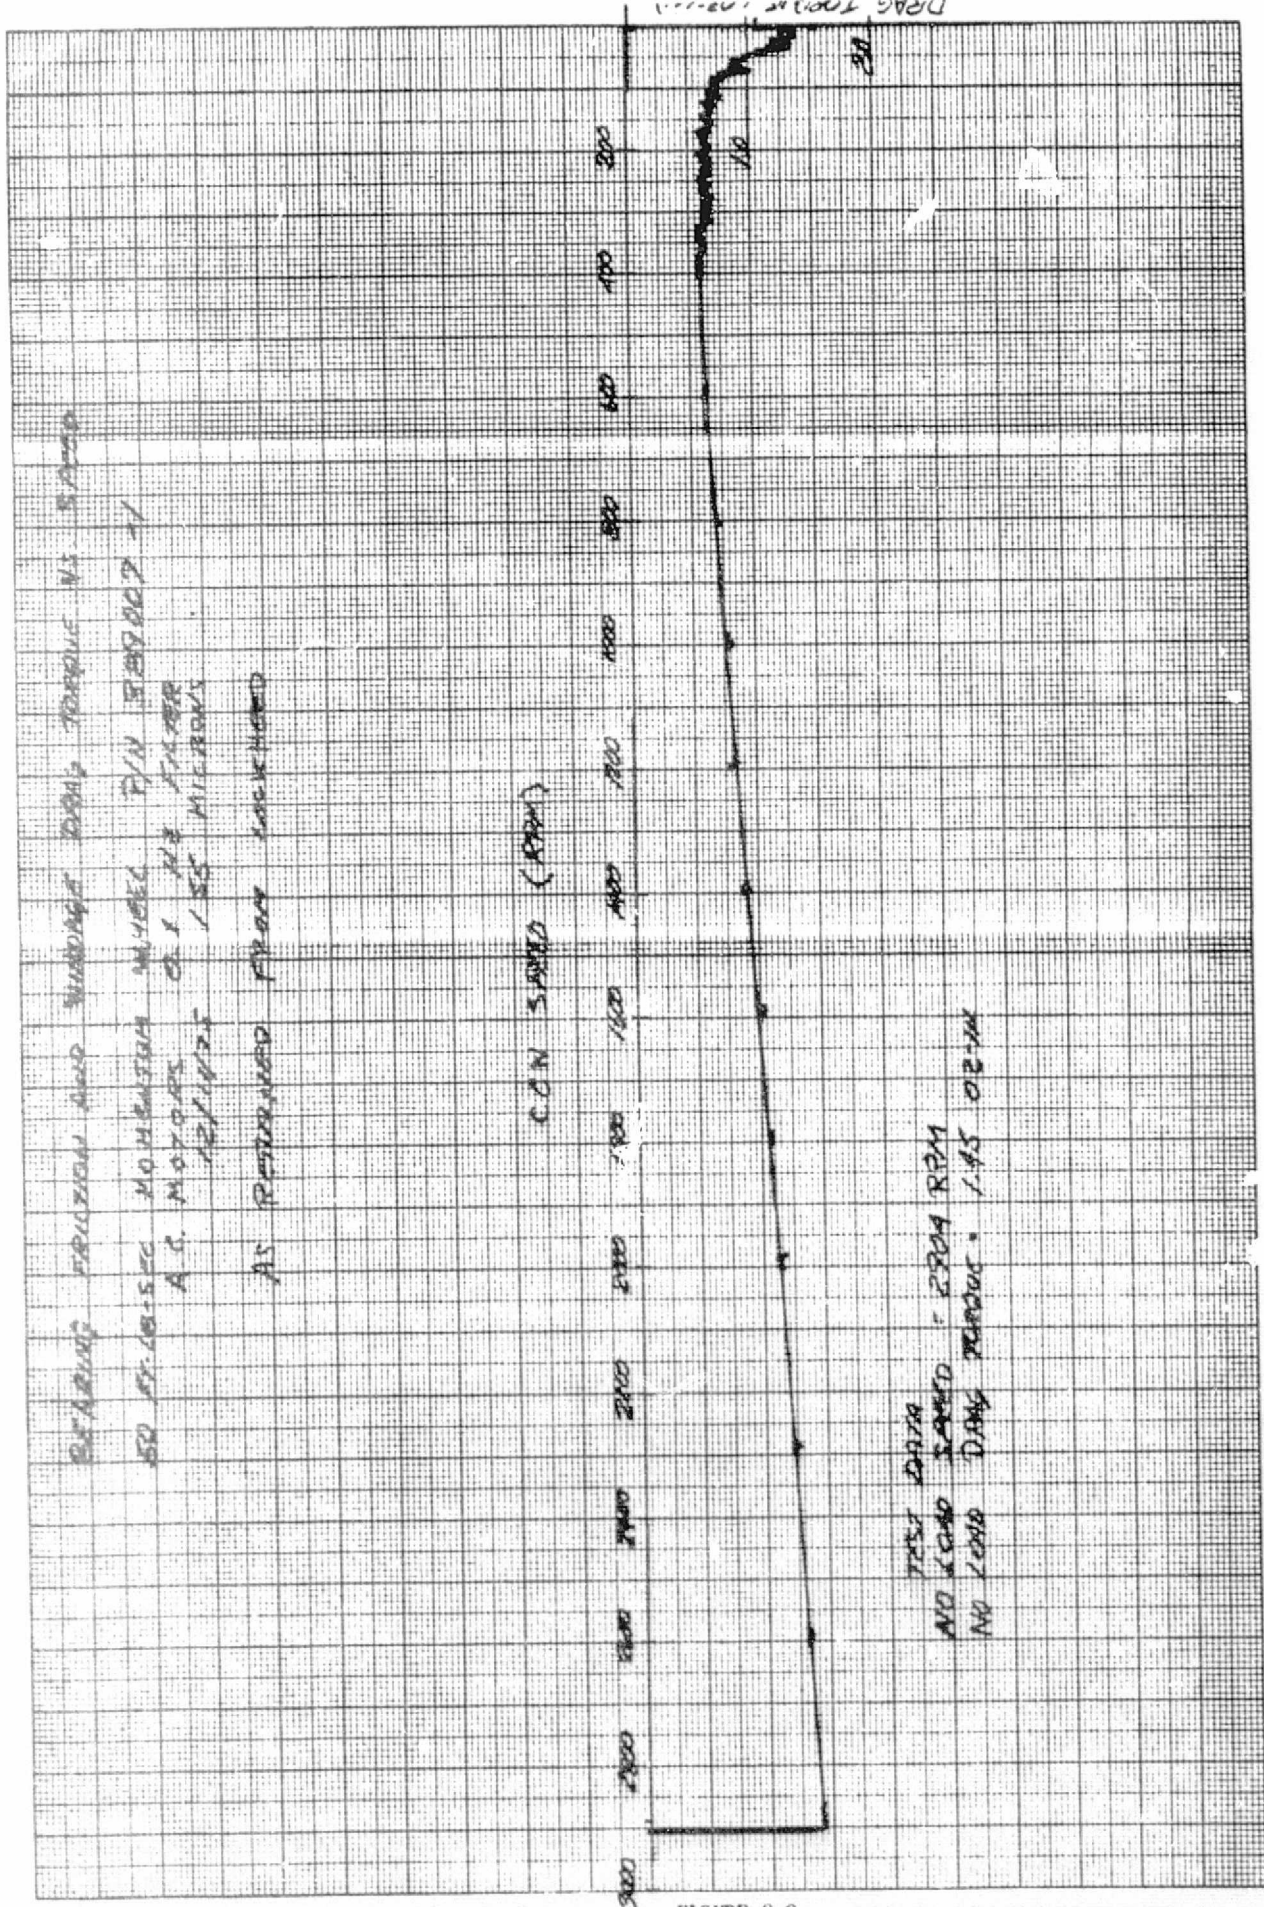 BEARING FRICTION AND WINDAGE DRAG TORQUE VS. SPEED
50 FT-LB-SEC MOMENTUM WHEEL P/N 389007-1
A.C. MOTORS 0.1 HZ FILTER
12/11/75 155 MICRONS
AS RETURNED FROM LOCKHEED
CCW SPEED (RPM)
3000 2800 2600 2400 2200 2000 1800 1600 1400 1200 1000 800 600 400 200
1.0
2.0
DRAG TORQUE
TEST DATA
NO LOAD SPEED = 2904 RPM
NO LOAD DRAG TORQUE = 1.45 OZ-IN